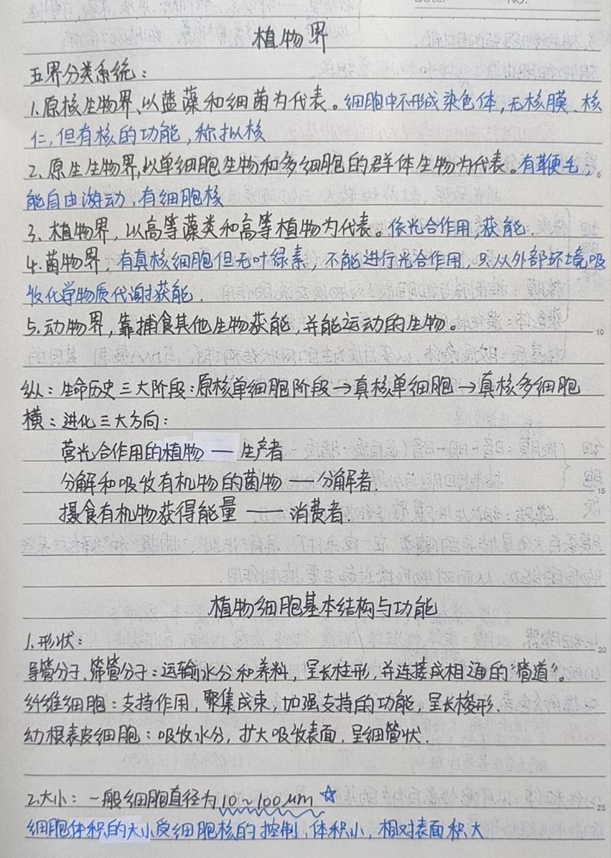 植物界
五界分类系统：
1.原核生物界，以蓝藻和细菌为代表。细胞中不形成染色体，无核膜、核
仁，但有核的功能，称拟核
2.原生生物界，以单细胞生物和多细胞的群体生物为代表。有鞭毛，
能自由游动，有细胞核
3.植物界，以高等藻类和高等植物为代表。依光合作用，获能.
4.菌物界，有真核细胞但无叶绿素，不能进行光合作用，只从外部环境吸
收化学物质代谢获能.
5.动物界，靠捕食其他生物获能，并能运动的生物。
纵：生命历史三大阶段：原核单细胞阶段→真核单细胞→真核多细胞
横：进化三大方向：
营光合作用的植物——生产者
分解和吸收有机物的菌物——分解者.
摄食有机物获得能量——消费者.
植物细胞基本结构与功能
1.形状：
导管分子、筛管分子：运输水分和养料，呈长柱形，并连接成相通的“管道”。
纤维细胞：支持作用，聚集成束，加强支持的功能，呈长梭形.
幼根表皮细胞：吸收水分，扩大吸收表面，呈细管状.
2.大小：一般细胞直径为10~100μm☆
细胞体积的大小受细胞核的控制，体积小，相对表面积大